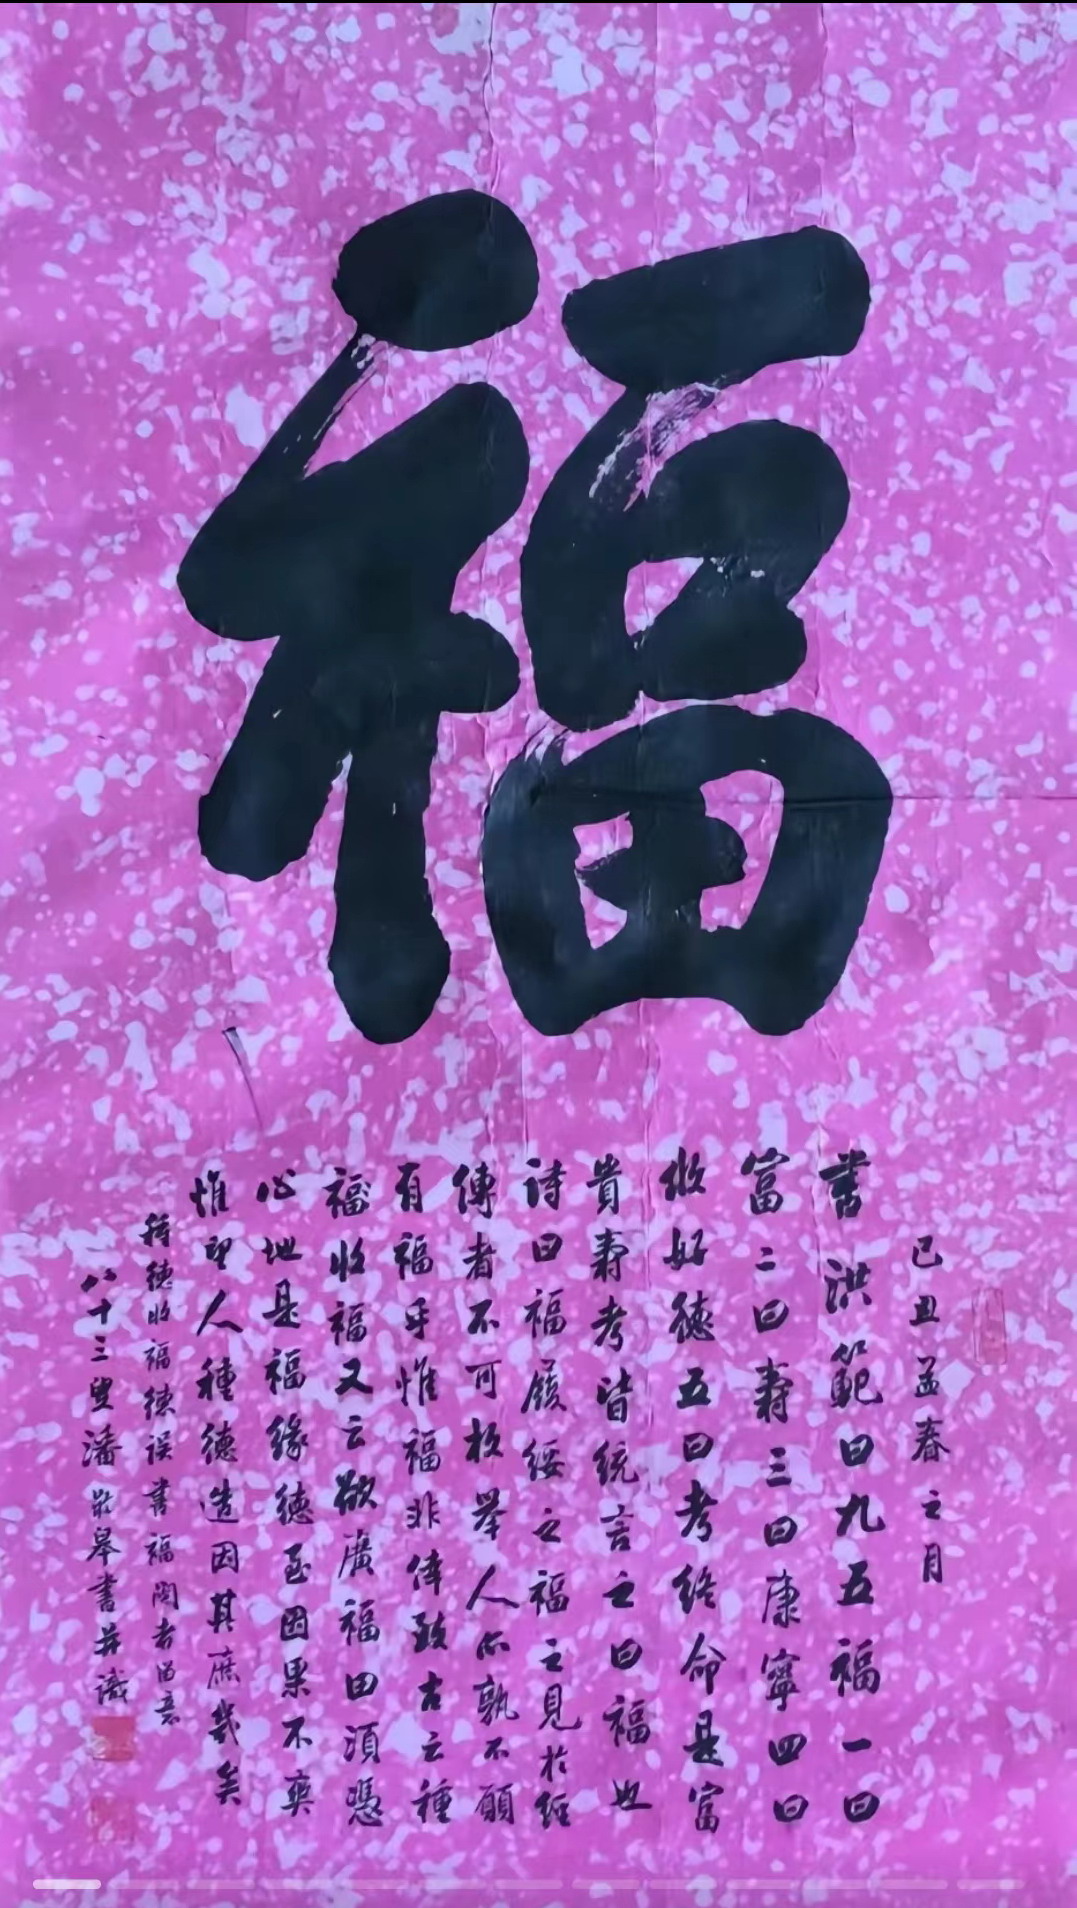 福
己丑孟春之月
書洪範曰九五福一曰
富二曰壽三曰康寧四曰
攸好德五曰考終命是富
貴壽考皆統言之曰福也
詩曰福履綏之福之見於經
傳者不可枚舉人心孰不願
有福乎惟福非倖致古云種
福收福又云欲廣福田須憑
心地是福緣德至因果不爽
惟望人種德造因其庶幾矣
種德收福德誤書福閱者留意
八十三叟潘 舉書并識